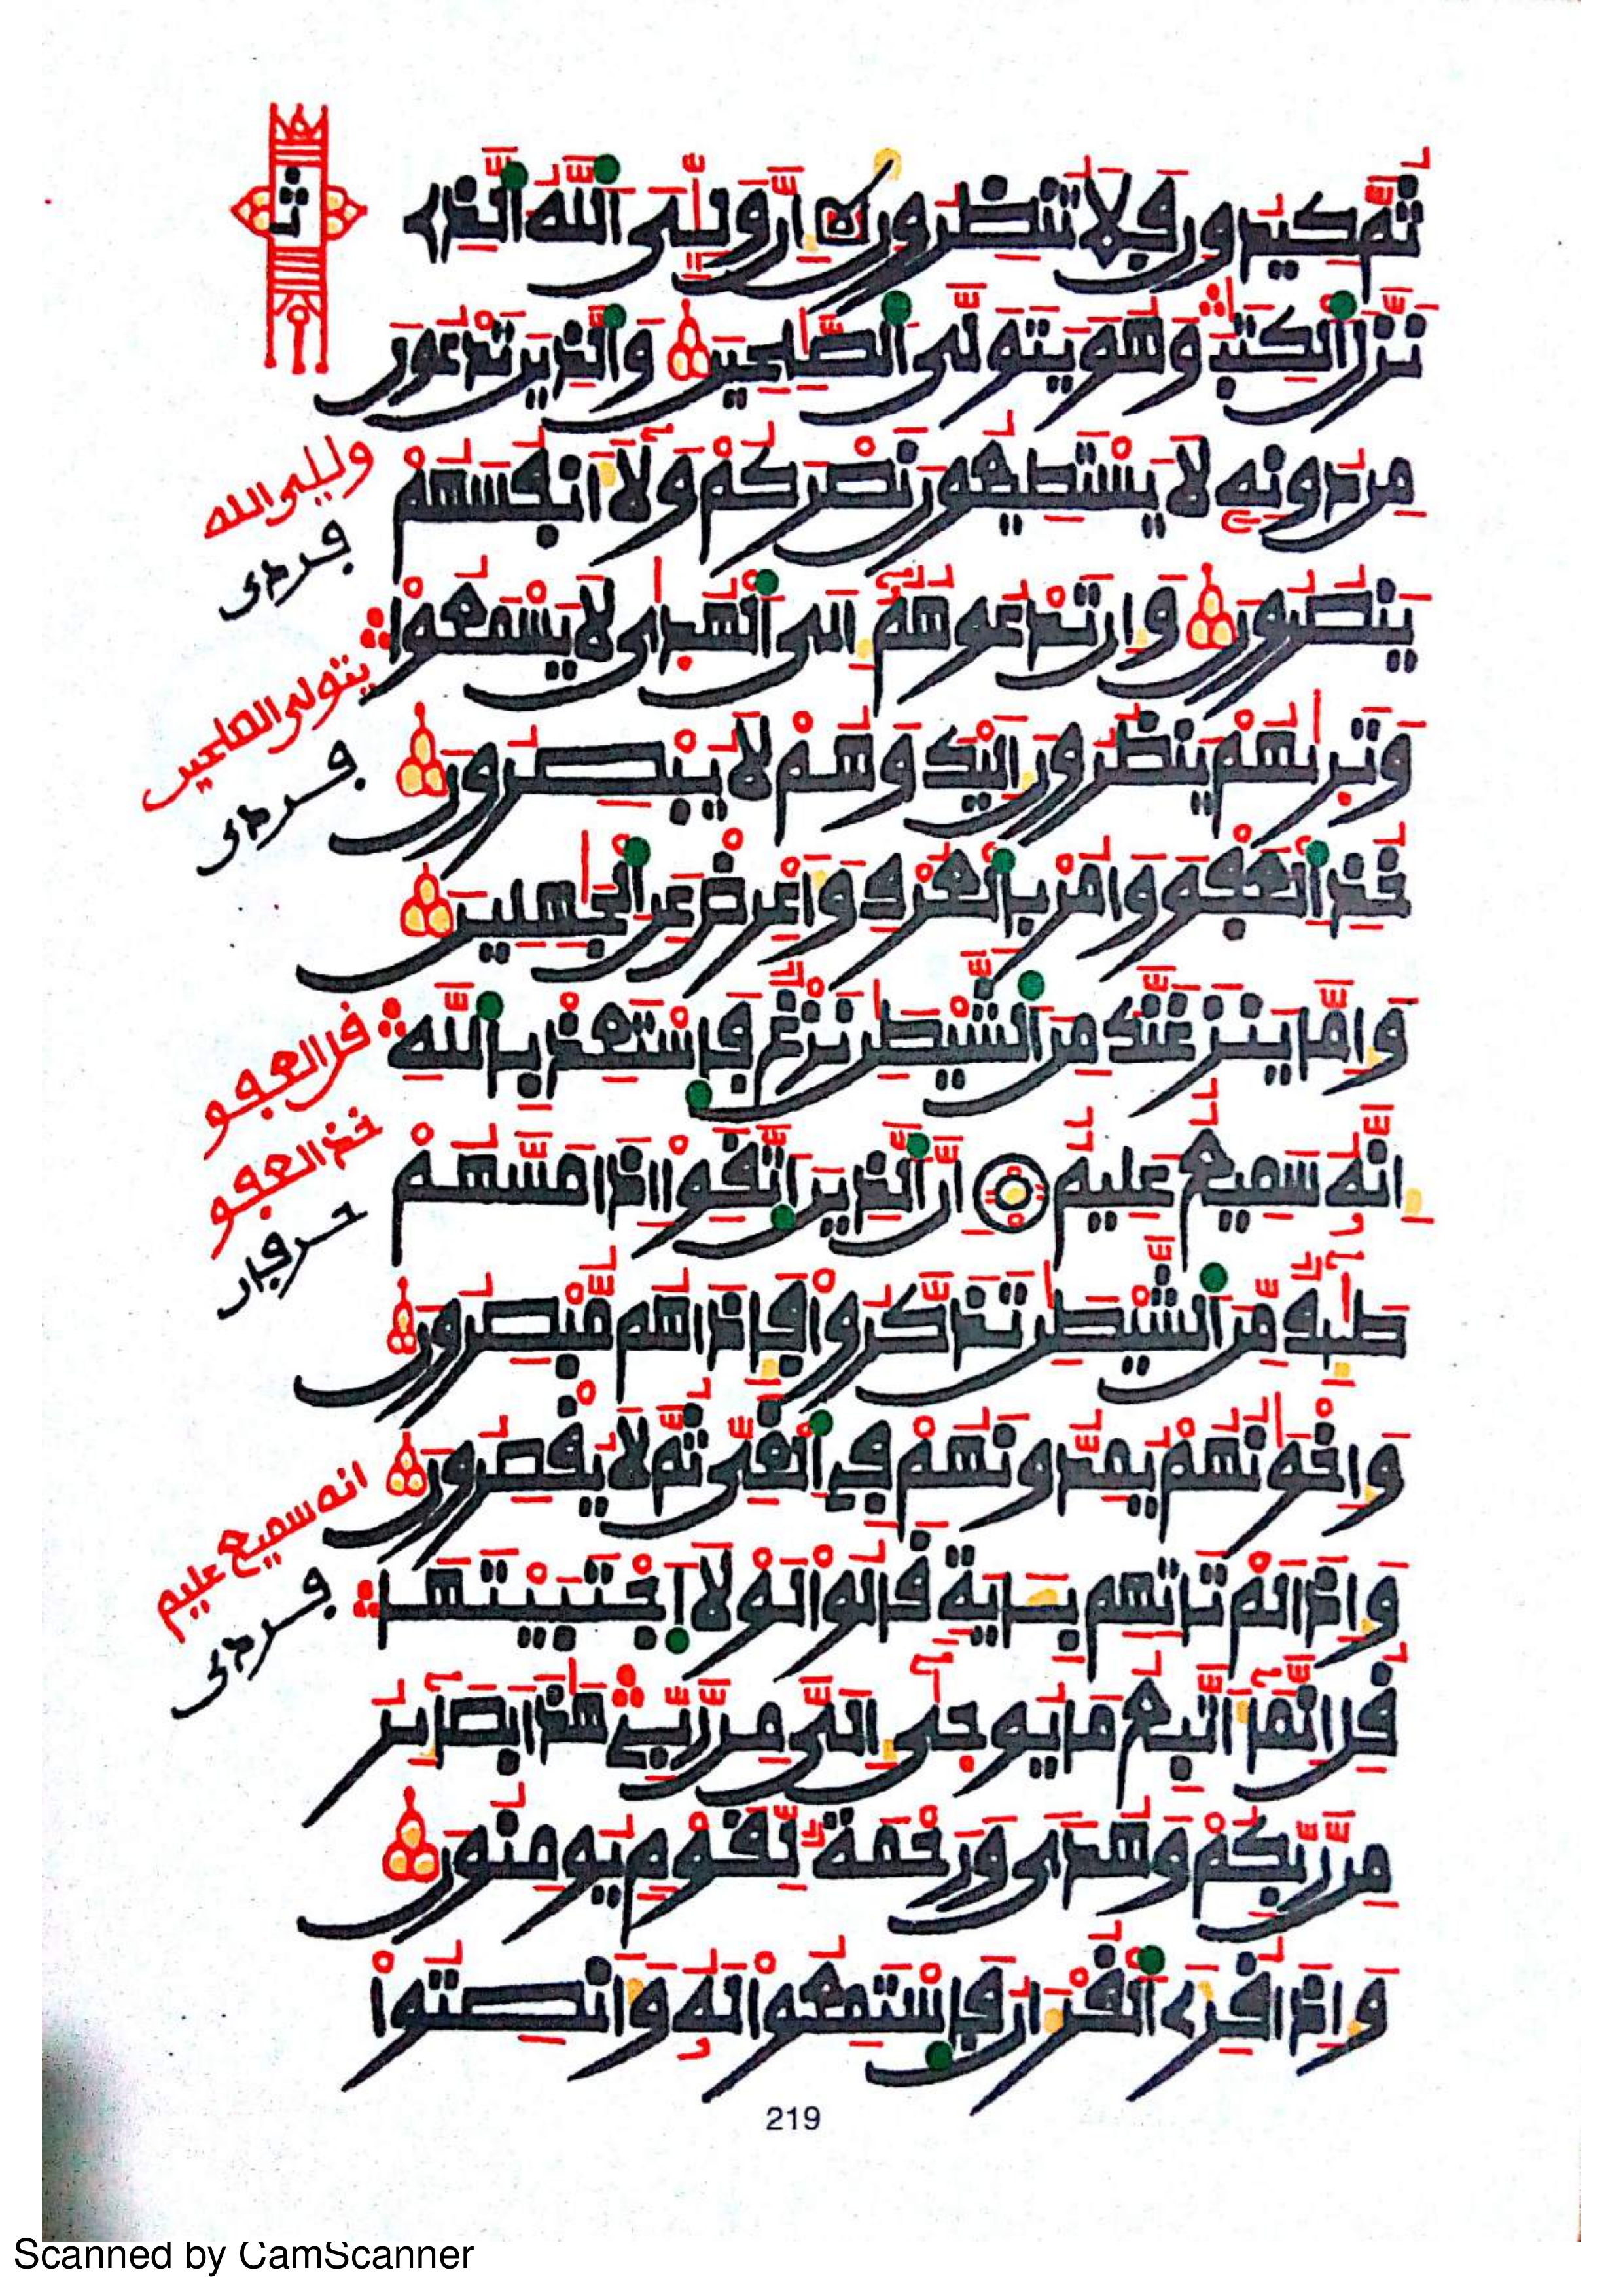 ثُمَّ كِيدُونِ فَلَا تُنظِرُونِ إِنَّ وَلِيِّيَ اَللَّهُ اَلذِے
نَزَّلَ اَلْكِتَٰبَ وَهُوَ يَتَوَلَّى اَلصَّٰلِحِينَ وَالذِينَ تَدْعُونَ
مِن دُونِهِ لَا يَسْتَطِيعُونَ نَصْرَكُمْ وَلَآ أَنفُسَهُمْ
يَنصُرُونَ وَإِن تَدْعُوهُمُ إِلَى اَلْهُدَىٰ لَا يَسْمَعُواْ
وَتَرَىٰهُمْ يَنظُرُونَ إِلَيْكَ وَهُمْ لَا يُبْصِرُونَ
خُذِ اِلْعَفْوَ وَامُرْ بِالْعُرْفِ وَأَعْرِضْ عَنِ اِلْجَٰهِلِينَ
وَإِمَّا يَنزَغَنَّكَ مِنَ اَلشَّيْطَٰنِ نَزْغٌ فَاسْتَعِذْ بِاللَّهِ
إِنَّهُ سَمِيعٌ عَلِيمٌ إِنَّ اَلذِينَ اَتَّقَوِاْ إِذَا مَسَّهُمْ
طَٰٓئِفٌ مِّنَ اَلشَّيْطَٰنِ تَذَكَّرُواْ فَإِذَا هُم مُّبْصِرُونَ
وَإِخْوَٰنُهُمْ يُمِدُّونَهُمْ فِي اِلْغَيِّ ثُمَّ لَا يُقْصِرُونَ
وَإِذَا لَمْ تَاتِهِم بِـَٔايَةٍ قَالُواْ لَوْلَا اَجْتَبَيْتَهَا
قُلِ إِنَّمَآ أَتَّبِعُ مَا يُوحَىٰٓ إِلَيَّ مِن رَّبِّے هَٰذَا بَصَآئِرُ
مِن رَّبِّكُمْ وَهُدًى وَرَحْمَةٌ لِّقَوْمٍ يُومِنُونَ
وَإِذَا قُرِےءَ اَلْقُرْءَانُ فَاسْتَمِعُواْ لَهُ وَأَنصِتُواْ
وليى الله
يتولى الصلحين
قل العفو
خذ العفو
انه سميع عليم
219
Scanned by CamScanner